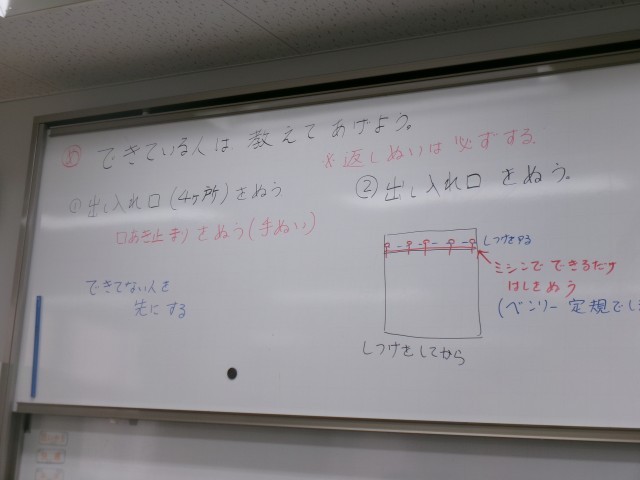 できている人は 教えてあげよう。
※返しぬいは必ずする。
①出し入れ口(4ヶ所)をぬう
口あき止まりをぬう(手ぬい)
できてない人を
先にする
②出し入れ口 をぬう。
しつけをする
ミシンで できるだけ
はしをぬう
(ベンリー定規でし
しつけをしてから